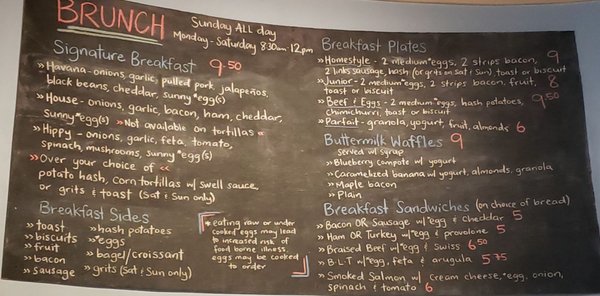 BRUNCH
Sunday ALL day
Monday - Saturday 830am 12pm
Signature Breakfast 9.50
» Havana - onions, garlic, pulled pork, jalapeños,
black beans, cheddar, sunny *egg(s)
» House - onions, garlic, bacon, ham, cheddar,
Sunny *egg(s) » Not available on tortillas «
» Hippy - onions, garlic, feta, tomato,
spinach, mushrooms, sunny *egg(s)
» Over your choice of «
potato hash, corn tortillas w/ swell sauce,
or grits & toast (Sat & Sun only)
Breakfast Sides
» toast
» biscuits
» fruit
» bacon
» sausage
» hash potatoes
» *eggs
» bagel/croissant
» grits (Sat & Sun only)
* eating raw or under
cooked eggs may lead
to increased risk of
food borne illness.
eggs may be cooked
to order
Breakfast Plates
» Homestyle - 2 medium *eggs, 2 strips bacon, 9
2 links sausage, hash (or grits on Sat & Sun) toast or biscuit
» Junior - 2 medium *eggs, 2 strips bacon, fruit, 8
toast or biscuit
» Beef & Eggs - 2 medium *eggs, hash potatoes, 9.50
Chimichurri, toast or biscuit
» Parfait - granola, yogurt, fruit, almonds 6
Buttermilk Waffles 9
served w/ syrup
» Blueberry compote w/ yogurt
» Caramelized banana w/ yogurt, almonds, granola
» Maple bacon
» Plain
Breakfast Sandwiches (on choice of bread)
» Bacon OR Sausage w/ *egg & Cheddar 5
» Ham OR Turkey w/ *egg & provolone 5
» Braised Beef w/ *egg & Swiss 6.50
» B·L·T w/ *egg, feta & arugula 5.75
» Smoked Salmon w/ Cream cheese, *egg, onion,
spinach & tomato 6